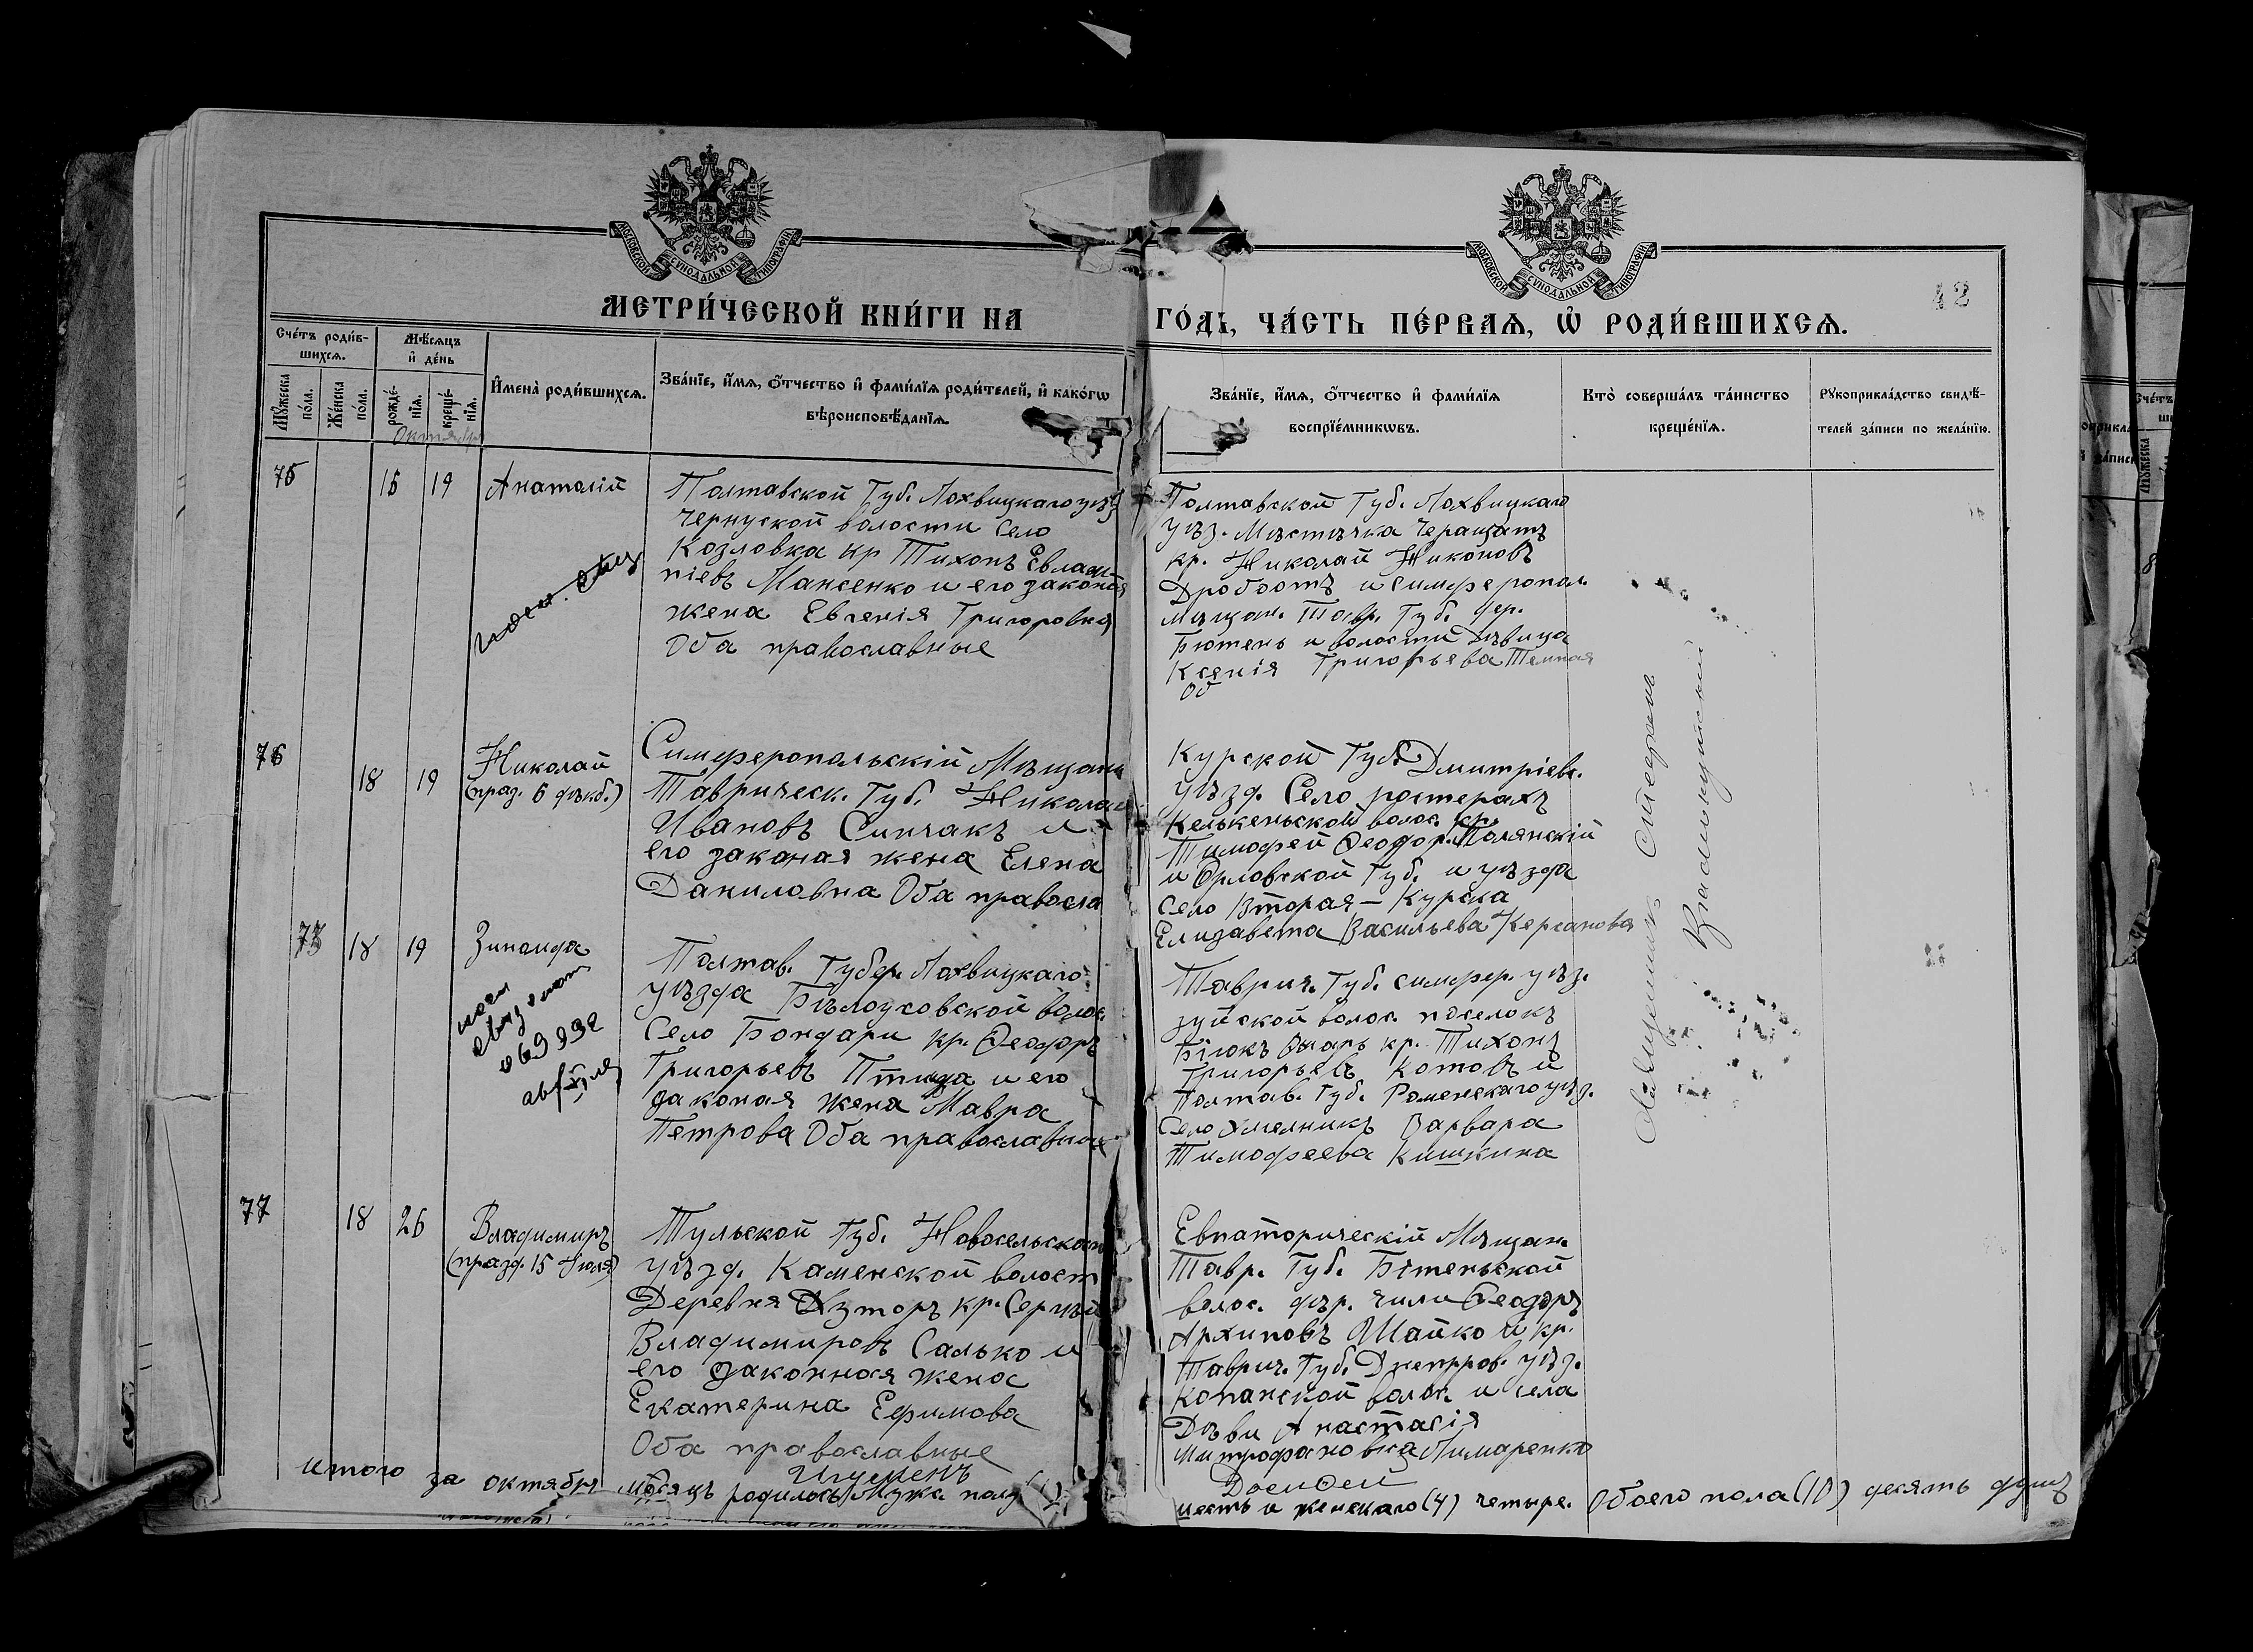 МОСКОВСКОЙ СѴНОДАЛЬНОЙ ТИПОГРАФІИ
МОСКОВСКОЙ СѴНОДАЛЬНОЙ ТИПОГРАФІИ
42
МЕТРИ́ЧЕСКОЙ КНИ́ГИ НА ГО́ДЪ, ЧА́СТЬ ПЕ́РВАЯ, Ѡ҆ РОДИ́ВШИХСЯ.
Сче́тъ роди́в-
шихся.
Мѣ́сяцъ
и҆ де́нь
Мꙋ́жеска
по́ла.
Же́нска
по́ла.
рожде́-
нїя.
креще́-
нїя.
И҆мена̀ роди́вшихся.
Зва́нїе, и҆́мя, ѻ҆́тчество и҆ фами́лїя роди́телей, и҆ како́гѡ
вѣроисповѣ́данїя.
Зва́нїе, и҆́мя, ѻ҆́тчество и҆ фами́лїя
воспрїе́мникѡвъ.
Кто̀ соверша́лъ та́инство
креще́нїя.
Рꙋкоприкла́дство свидѣ́-
телей за́писи по жела́нїю.
Октября
75 15 19 Анатолій
Полтавской Губ. Лохвицкаго уѣз
Чернуской волости Село
Козловка кр Тихонъ Евлам-
піевъ Мансенко и его законая
жена Евгенія Григоровна
Оба православные
Полтавской Губ. Лохвицкаго
уѣз. Мѣстечка
кр. Николай Никоновъ
Дроботъ и Симферопол.
мѣщан. Тавр. Губ. дер.
Бютень и волости Дѣвица
Ксенія Григорьева
Об
76 18 19 Николай
(праз. 6 декб.)
Симферопольскій Мѣщанъ
Таврическ. Губ. Николай
Ивановъ Синчакъ и
его законая жена Елена
Даниловна Оба правосла
Курской Губ. Дмитріевс.
уѣзд. Село
волос. кр.
Тимофей Ѳеодор. Полянскій
и Орловской Губ. и уѣзда
Село Вторая – Курска
Елизавета Васильева
73 18 19 Зинаида
Полтав. Губер. Лохвицкаго
уѣзда Бѣлоусовской волос.
Село Бондари кр. Ѳеодоръ
Григорьевъ Птица и его
законая жена Мавра
Петрова Оба православные
Таврич. Губ. симфер. уѣз.
зуйской волос. поселокъ
кр. Тихонъ
Григорьевъ Котовъ и
Полтав. Губ. Роменскаго уѣз.
Село Хмелникъ Варвара
Тимофеева Кишкина
77 18 26 Владимиръ
(празд. 15 Іюля)
Тульской Губ. Новосельскаго
уѣзд. Каменской волост
Деревня Хуторъ кр. Сергѣй
Владимировъ Салько и
его законная жена
Екатерина Ефимова
Оба православные
Евпаторическій Мѣщан.
Тавр. Губ.
волос. дер. Ѳеодоръ
Архиповъ Шайко и кр.
Таврич. Губ. Днепров. уѣз.
Копанской волос. и села
Дѣви Анастасія
Митрофановна Лимаренко
Священникъ Стефанъ
Игуменъ Досиѳей
итого за октябрь мѣсяцъ родилось Мужс. полу
шесть и женскаго (4) четыре. Обоего пола (10) десять душъ